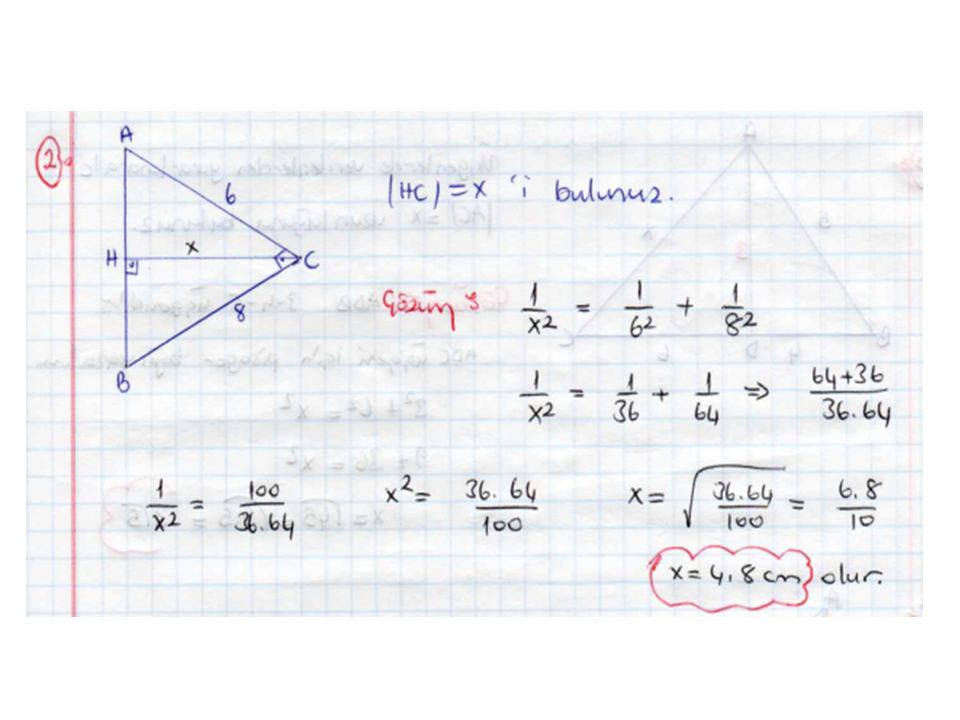 2.
A
6
|HC| = x 'i bulunuz.
H
x
C
8
B
Çözüm :
1/x² = 1/6² + 1/8²
1/x² = 1/36 + 1/64 ⇒ 64+36/36.64
1/x² = 100/36.64 x² = 36.64/100 x = √(36.64/100) = 6.8/10
x = 4,8 cm olur.